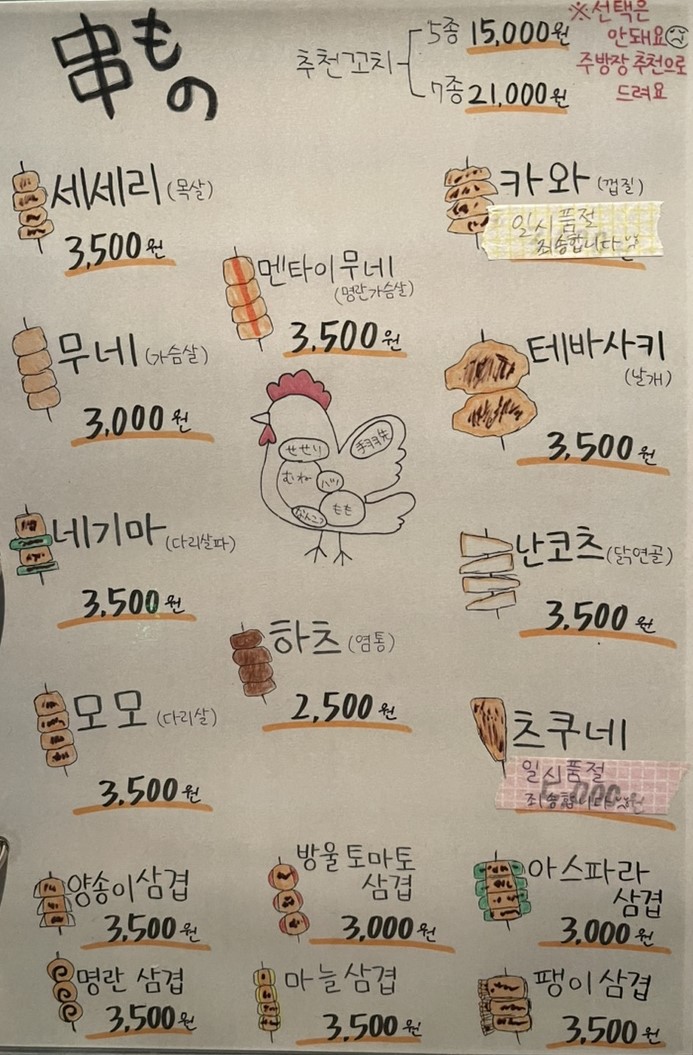 串もの
추천꼬치
5종 15,000원
7종 21,000원
※선택은
안돼요
주방장 추천으로
드려요
세세리 (목살)
3,500원
카와 (껍질)
일시품절
죄송합니다
멘타이무네
(명란가슴살)
3,500원
무네 (가슴살)
3,000원
테바사키
(날개)
3,500원
せせり
むね
ハツ
もも
なんこつ
네기마 (다리살파)
3,500원
난코츠 (닭연골)
3,500원
하츠 (염통)
2,500원
모모 (다리살)
3,500원
츠쿠네
일시품절
죄송합니다
양송이삼겹
3,500원
방울토마토
삼겹
3,000원
아스파라
삼겹
3,000원
명란 삼겹
3,500원
마늘삼겹
3,500원
팽이삼겹
3,500원